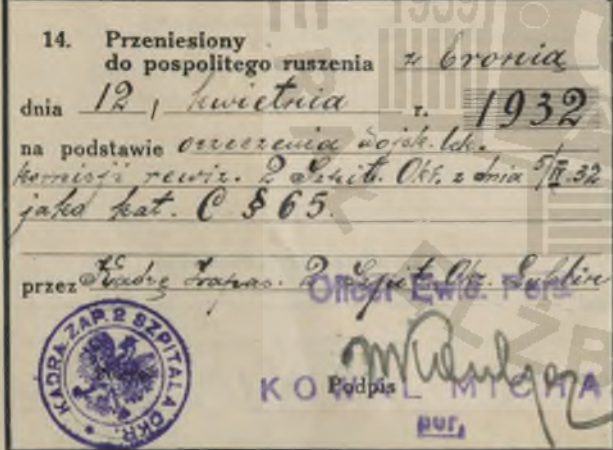 14. Przeniesiony
do pospolitego ruszenia z bronią
dnia 12 / kwietnia r. 1932
na podstawie orzeczenia wojsk. lek.
komisji rewiz. 2 Szpit. Okr. z dnia 5/III.32
jako kat. C § 65.
przez Kadrę Zapas. 2 Szpit. Okr. Lublin
Oficer Ewid. Pers.
KADRA ZAP. 2 SZPITALA OKR.
Podpis
KOWAL MICHA
por.